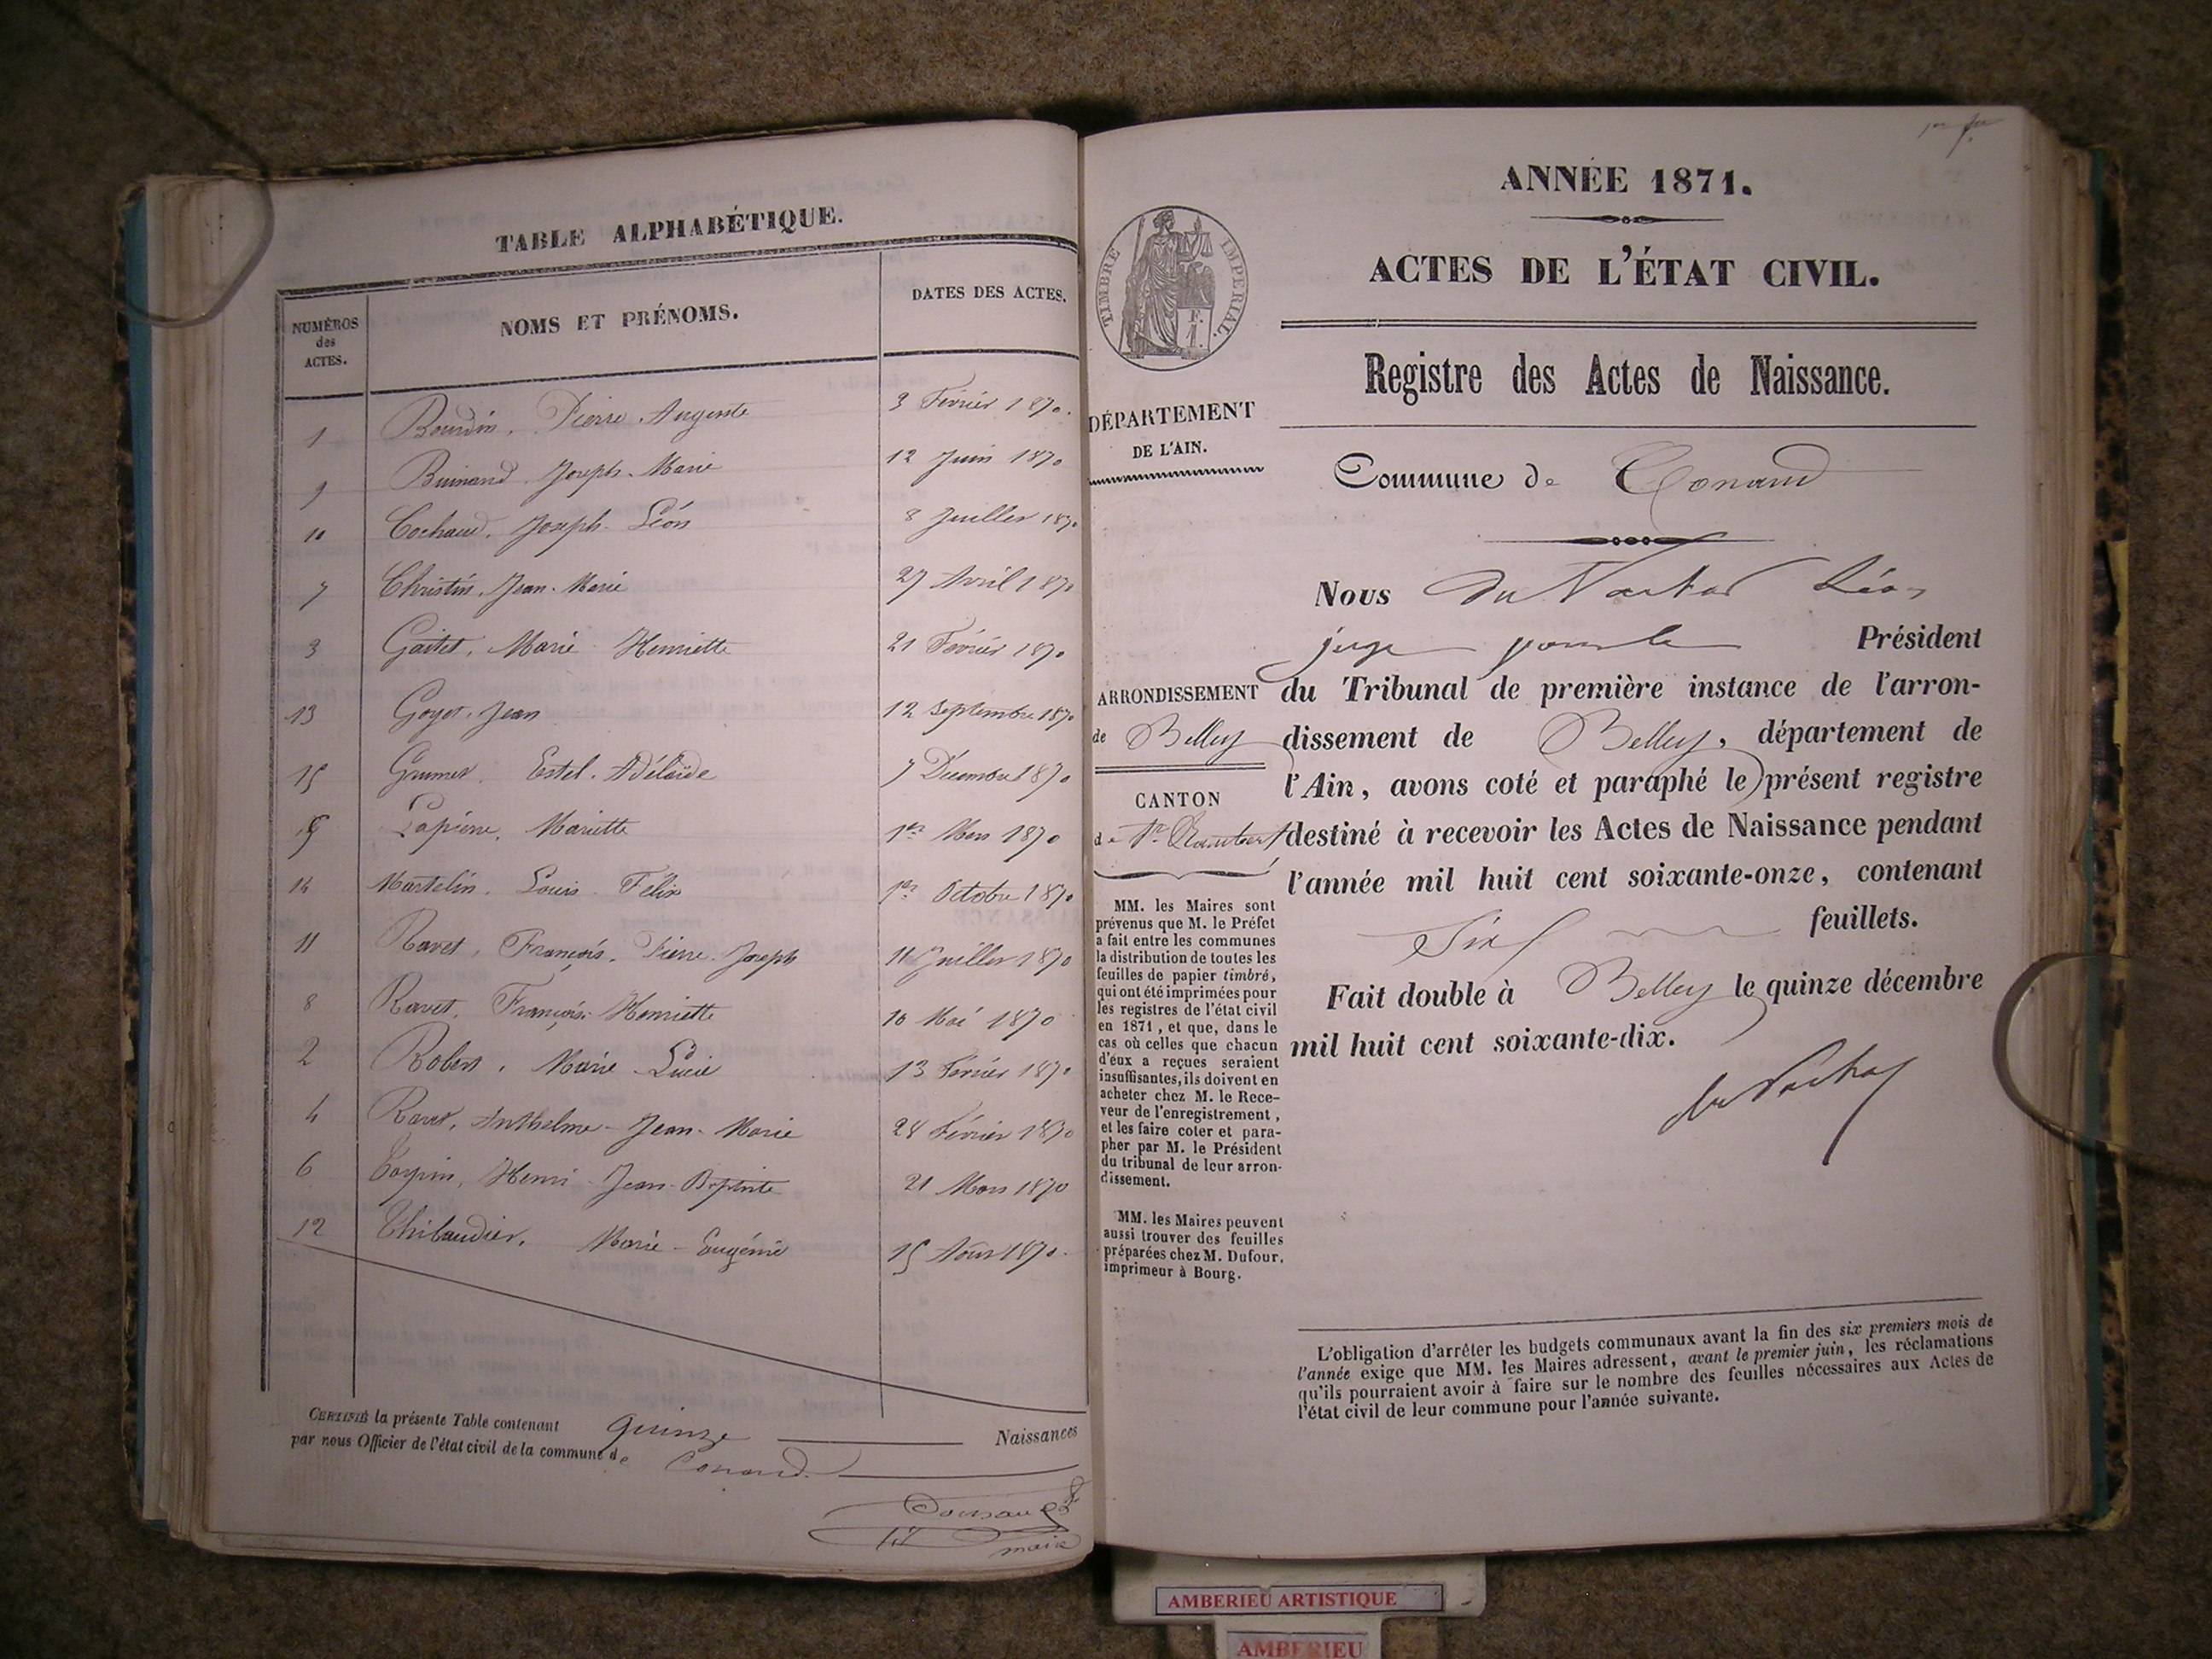 TABLE ALPHABÉTIQUE.
NUMÉROS des ACTES.
NOMS ET PRÉNOMS.
DATES DES ACTES.
1 Bourdin, Pierre Auguste 3 Février 1870.
9 Buinand Joseph Marie 12 Juin 1870
10 Cochaud, Joseph Léon 8 Juillet 1870
7 Christin, Jean Marie 27 Avril 1870
3 Gaitet, Marie Henriette 21 Février 1870
13 Goyot, Jean 12 Septembre 1870
15 Grumet, Estel Adélaïde 7 Décembre 1870
5 Lapierre, Mariette 1er Mars 1870
14 Martelin, Louis Félix 1er Octobre 1870
11 Ravet, François, Pierre Joseph 11 Juillet 1870
8 Ravet, Henriette 10 Mai 1870
2 Robert, Marie Lucie 13 Février 1870
4 Ravet, Anthelme Jean-Marie 28 Février 1870
6 Henri Jean-Baptiste 21 Mars 1870
12 Thibaudier, Marie-Eugénie 15 Août 1870.
CERTIFIÉ la présente Table contenant quinze Naissances
par nous Officier de l'état civil de la commune de Conand.
maire
ANNÉE 1871.
ACTES DE L'ÉTAT CIVIL.
TIMBRE IMPÉRIAL.
Registre des Actes de Naissance.
DÉPARTEMENT
DE L'AIN.
Commune de Conand
Nous Léon
juge pour le Président
du Tribunal de première instance de l'arron-
dissement de Belley, département de
l'Ain, avons coté et paraphé le présent registre
destiné à recevoir les Actes de Naissance pendant
l'année mil huit cent soixante-onze, contenant
Six feuillets.
Fait double à Belley le quinze décembre
mil huit cent soixante-dix.
ARRONDISSEMENT
de Belley
CANTON
de St Rambert
MM. les Maires sont
prévenus que M. le Préfet
a fait entre les communes
la distribution de toutes les
feuilles de papier timbré,
qui ont été imprimées pour
les registres de l'état civil
en 1871, et que, dans le
cas où celles que chacun
d'eux a reçues seraient
insuffisantes, ils doivent en
acheter chez M. le Rece-
veur de l'enregistrement,
et les faire coter et para-
pher par M. le Président
du tribunal de leur arron-
dissement.
MM. les Maires peuvent
aussi trouver des feuilles
préparées chez M. Dufour,
imprimeur à Bourg.
L'obligation d'arrêter les budgets communaux avant la fin des six premiers mois de
l'année exige que MM. les Maires adressent, avant le premier juin, les réclamations
qu'ils pourraient avoir à faire sur le nombre des feuilles nécessaires aux Actes de
l'état civil de leur commune pour l'année suivante.
AMBERIEU ARTISTIQUE
AMBERIEU